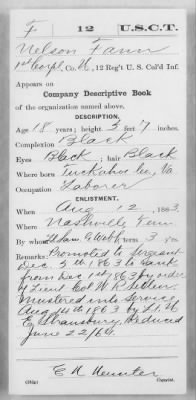 F 12 U.S.C.T.
Nelson Fann
1st Corpl, Co. H, 12 Reg't U. S. Col'd Inf.
Appears on
Company Descriptive Book
of the organization named above.
DESCRIPTION.
Age 18 years; height 5 feet 7 inches.
Complexion Black
Eyes Black; hair Black
Where born Co., Va.
Occupation Laborer
ENLISTMENT.
When Aug 12, 1863.
Where Nashville Tenn.
By whom term 3 y'rs.
Remarks: Promoted to Sergeant
Dec. 5th 1863 to rank
from Dec 1st 1863 by order
of Lieut Col W. R. Sellon.
Mustered into Service
Aug 14th 1863 by Lt. W
Reduced
June 22/64.
Copyist.